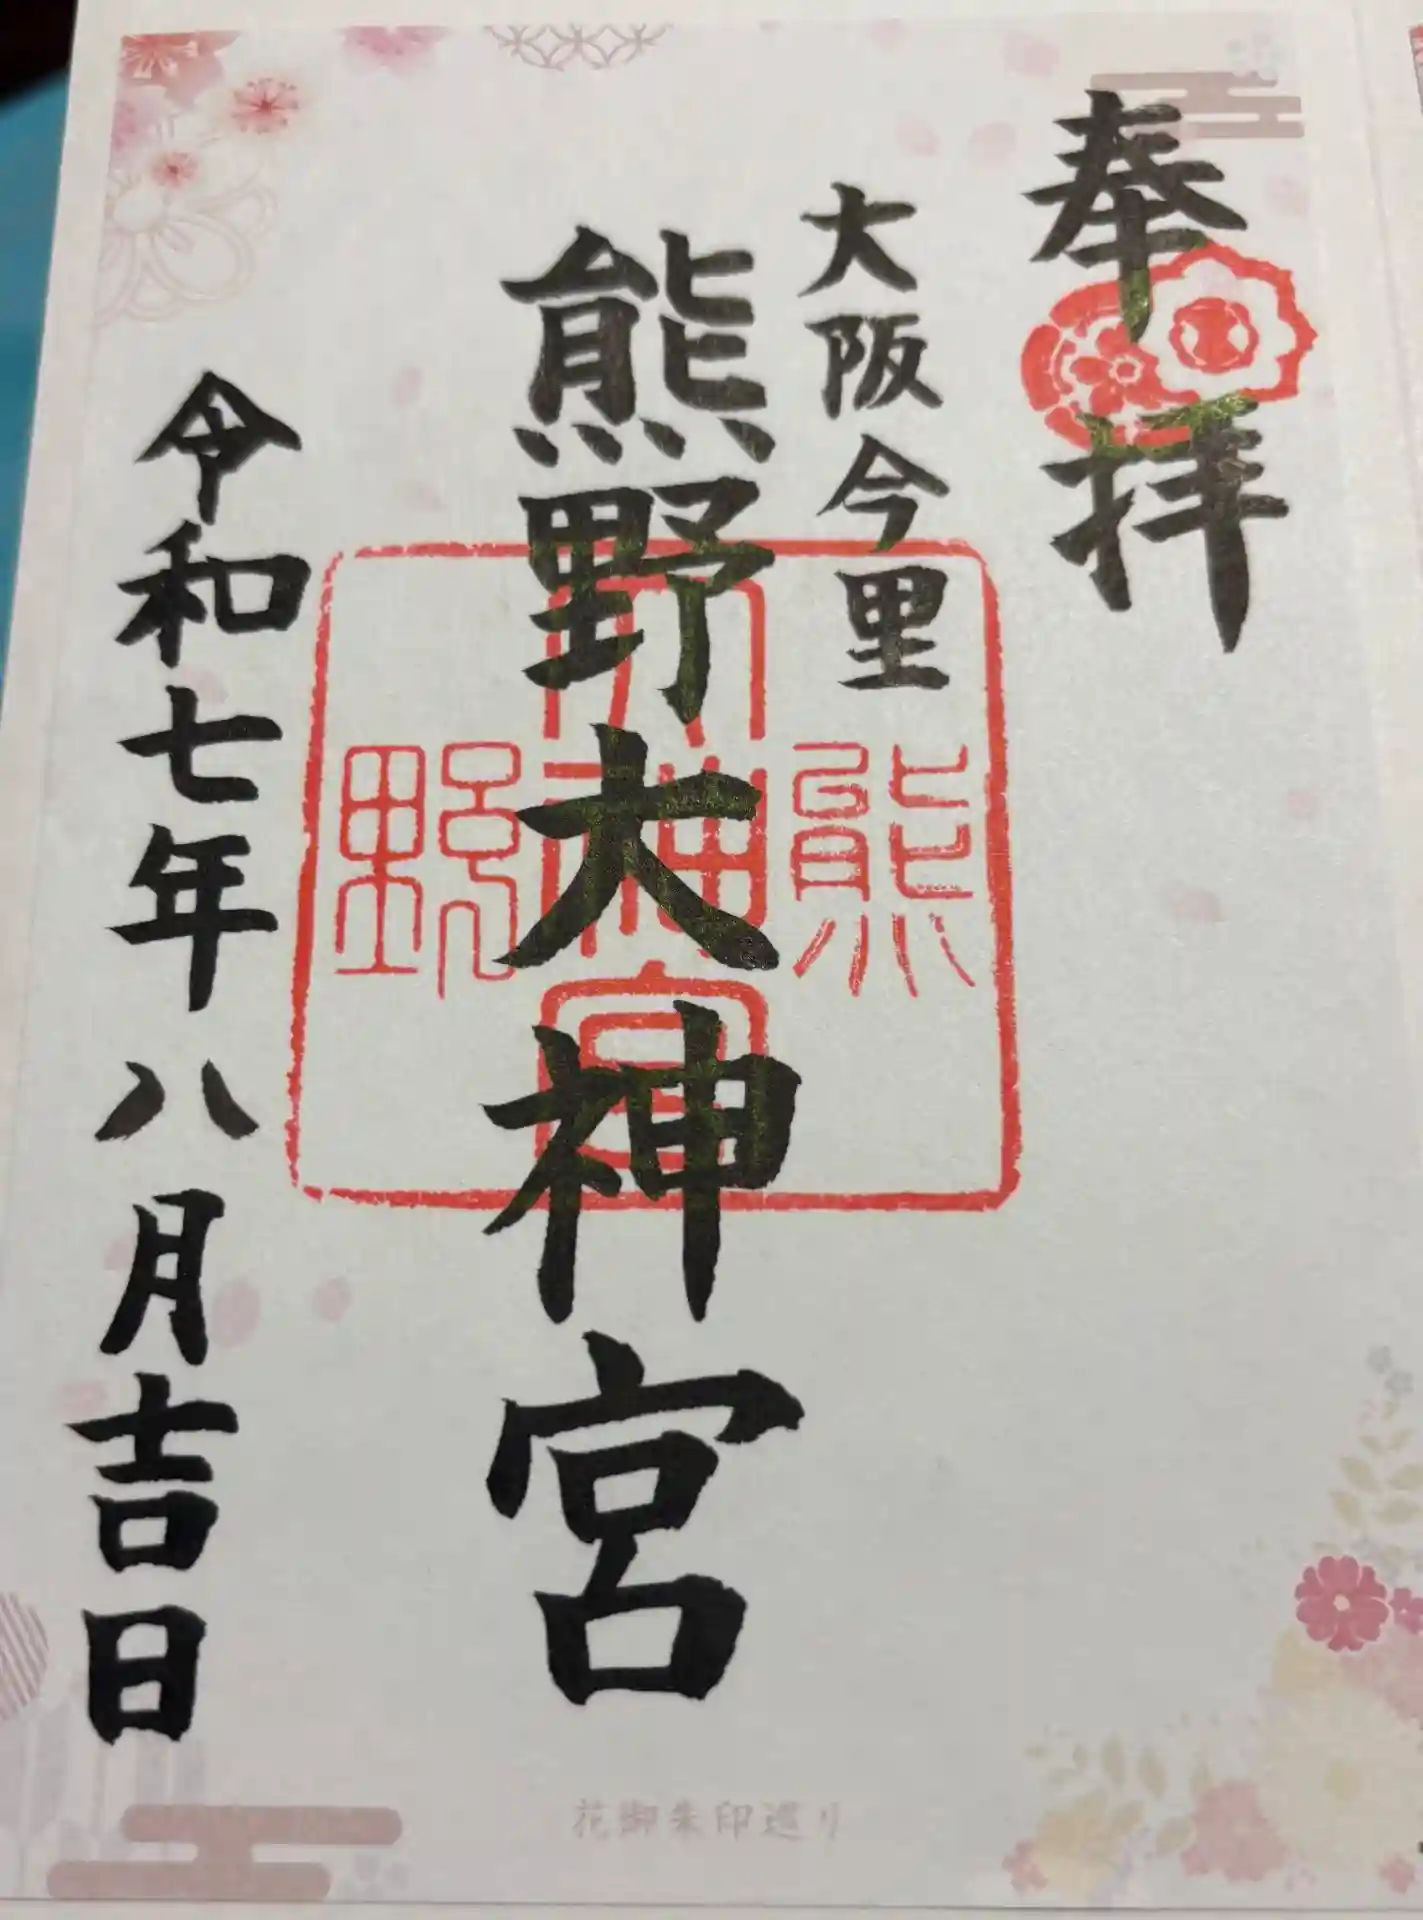 奉拝
大阪今里
熊野大神宮
熊野大神宮
令和七年八月吉日
花御朱印巡り